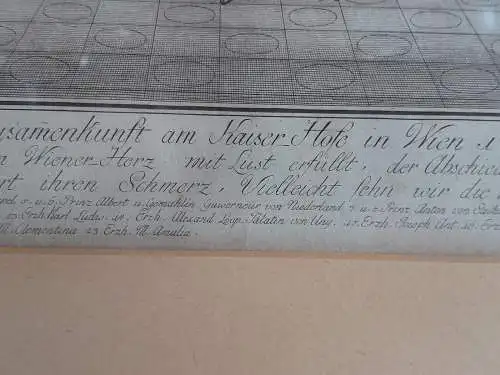 usam̄enkunft am Kaiser Hofe in Wien
Wiener-Herz mit Lust erfüllt, der Abschied
rt ihren Schmerz, Vielleicht sehn wir die
5. u. 6. Prinz Albert u. Gemahlin Guwerneur von Niederland 7. u. Prinz Anton von
Erzh. Karl Ludw. Erzh. Alexand. Leop. Palatin von Ung. Erzh. Joseph Ant.
M. Clementina 23 Erzh. M. Amalia.